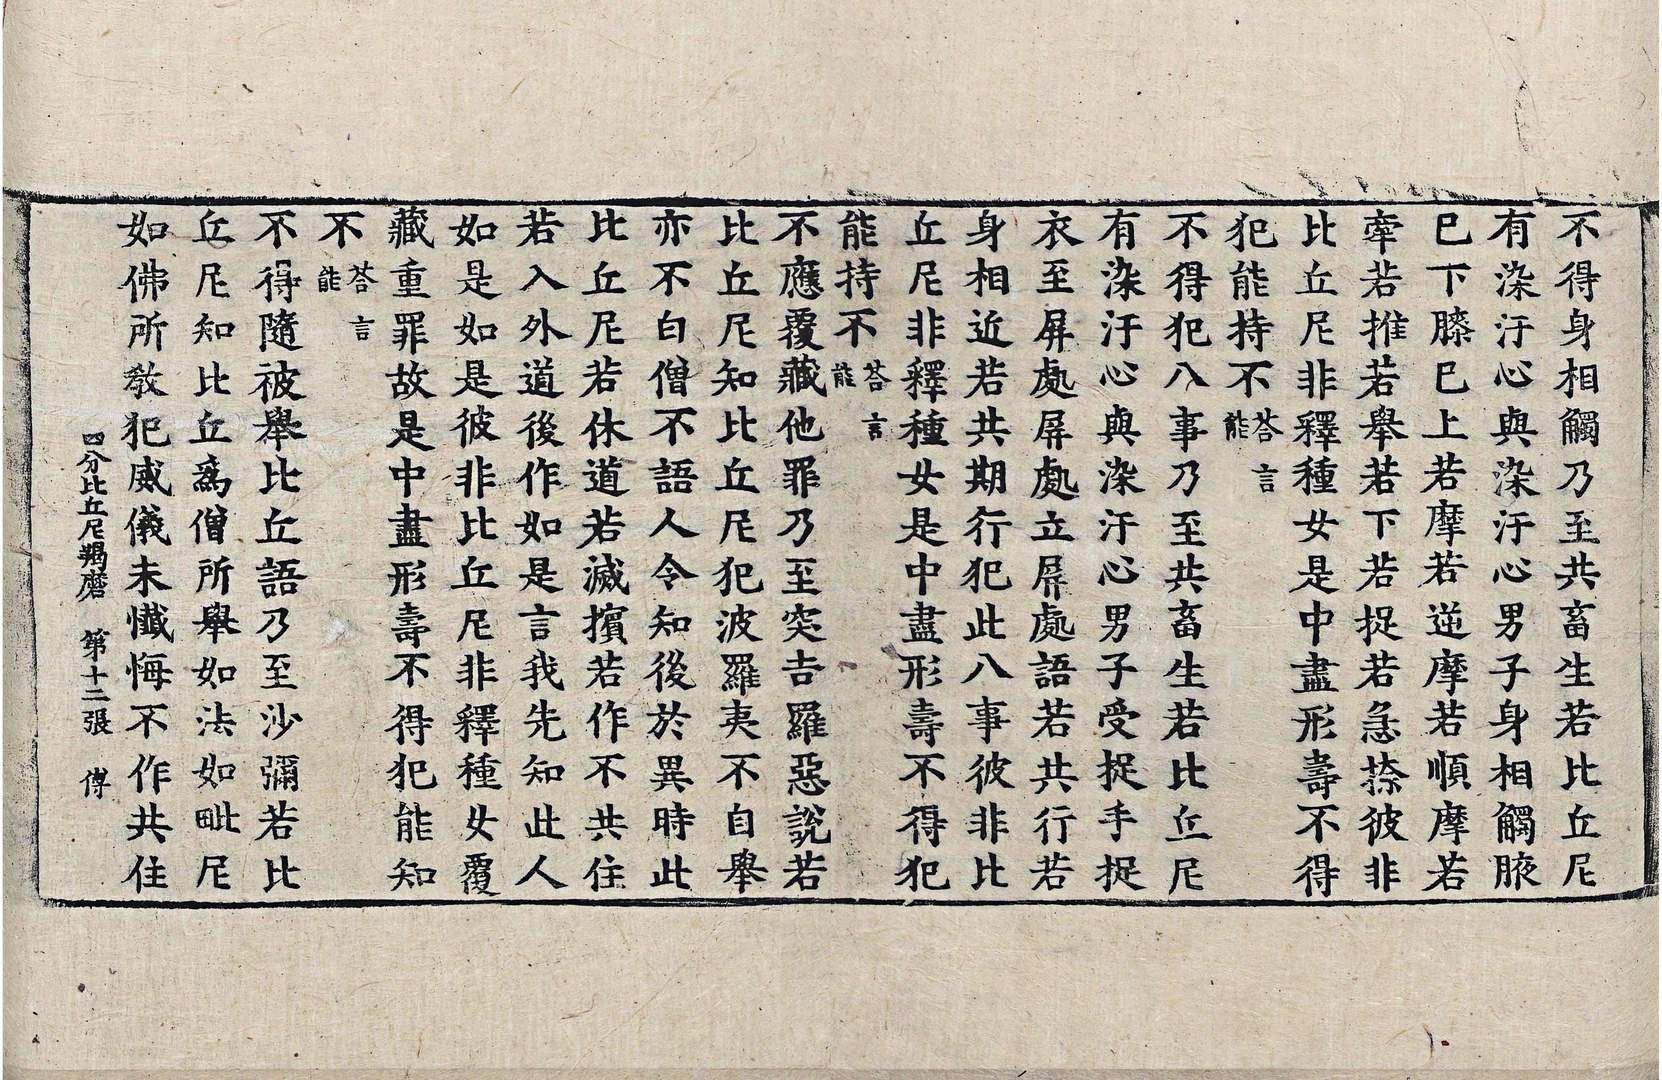 不得身相觸乃至共畜生若比丘尼
有染汙心與染汙心男子身相觸腋
已下膝已上若摩若逆摩若順摩若
牽若推若舉若下若捉若急捺彼非
比丘尼非釋種女是中盡形壽不得
犯能持不荅言能
不得犯八事乃至共畜生若比丘尼
有染汙心與染汙心男子受捉手捉
衣至屏處屏處立屏處語若共行若
身相近若共期行犯此八事彼非比
丘尼非釋種女是中盡形壽不得犯
能持不荅言能
不應覆藏他罪乃至突吉羅惡說若
比丘尼知比丘尼犯波羅夷不自舉
亦不白僧不語人令知後於異時此
比丘尼若休道若滅擯若作不共住
若入外道後作如是言我先知此人
如是如是彼非比丘尼非釋種女覆
藏重罪故是中盡形壽不得犯能知
不荅言能
不得隨被舉比丘語乃至沙彌若比
丘尼知比丘為僧所舉如法如毗尼
如佛所教犯威儀未懺悔不作共住
四分比丘尼羯磨 第十二張 傅